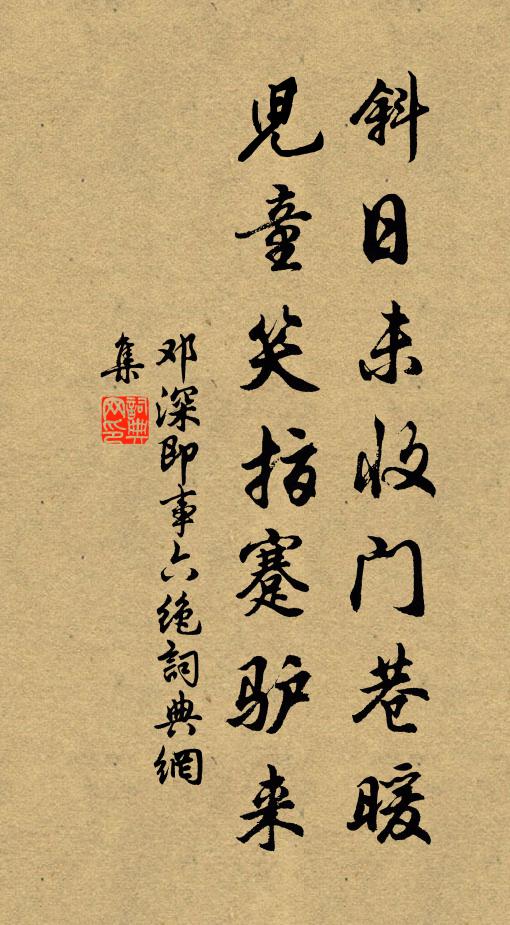 斜日未收门巷暖
児童笑指蹇驴来
邓深即事六绝詞典網
集
詞典网印